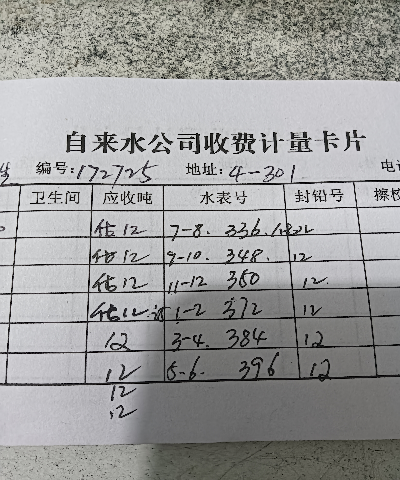 自来水公司收费计量卡片
编号:172725 地址:4-301 电
卫生间 应收吨 水表号 封铅号 擦校
估12 7-8. 336.
估12 9-10. 348. 12
估12 11-12 360 12.
估12 1-2 372 12
12 3-4. 384 12
12 5-6. 396 12
12
12